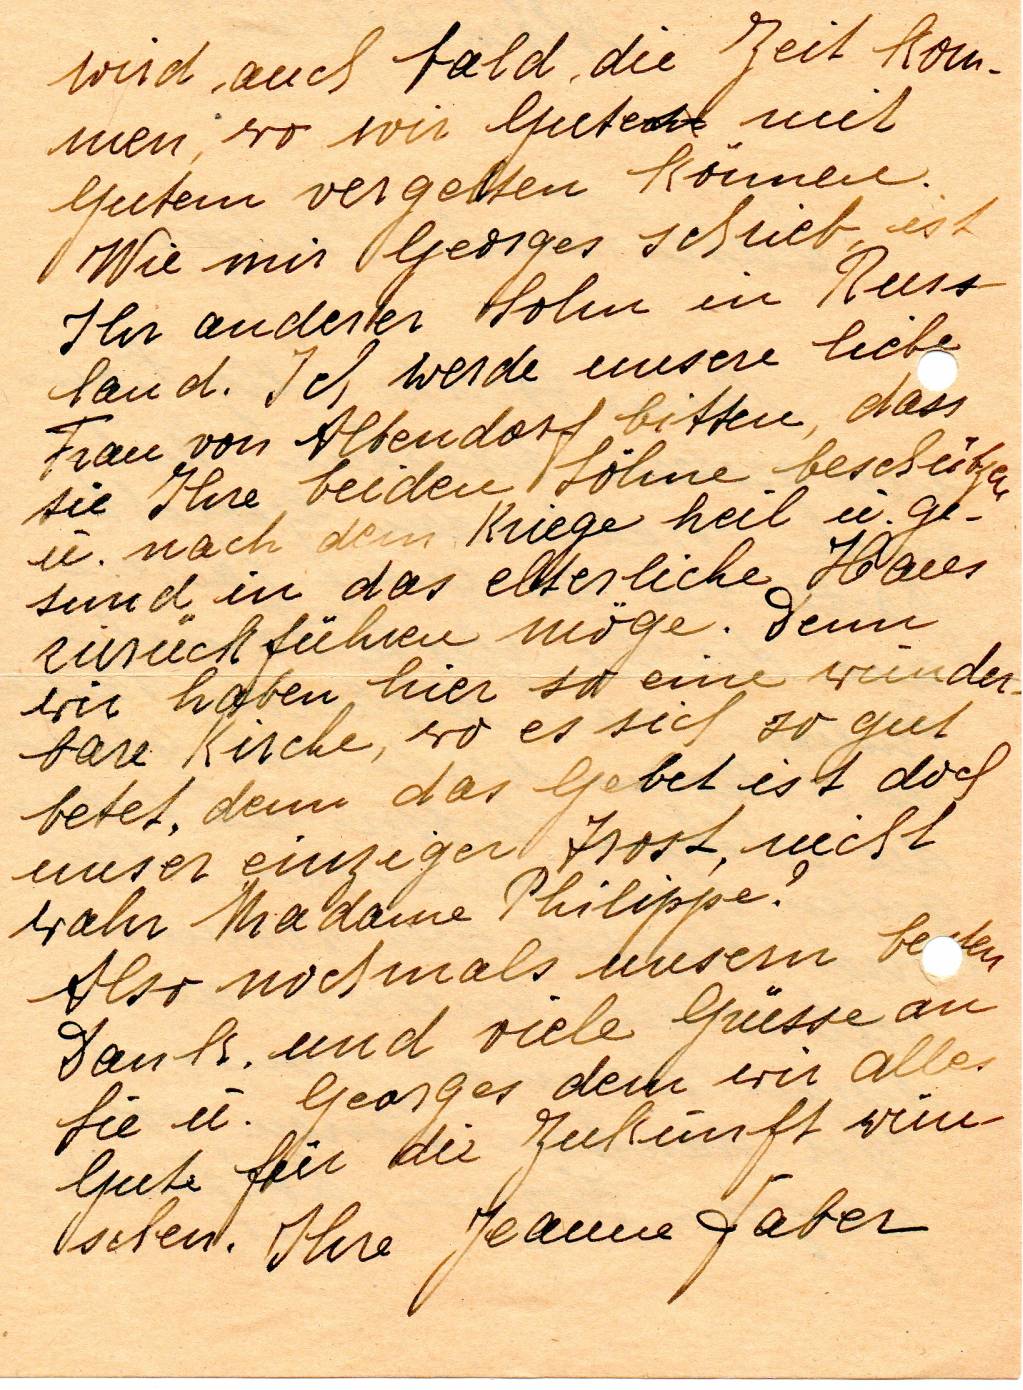 wird auch bald die Zeit kom-
men, wo wir Gutes mit
Gutem vergelten können.
Wie mir Georges schrieb, ist
Ihr anderer Sohn in Russ
land. Ich werde unsere liebe
Frau von Albendorf bitten, dass
sie Ihre beiden Söhne beschützen
u. nach dem Kriege heil u. ge-
sund in das elterliche Haus
zurückführen möge. Denn
wir haben hier so eine wunder-
bare Kirche, wo es sich so gut
betet, denn das Gebet ist doch
unser einziger Trost, nicht
wahr Madame Philippe?
Also nochmals unsern besten
Dank. und viele Grüsse an
Sie u. Georges dem wir alles
Gute für die Zukunft wün-
schen. Ihre Jeanne Faber